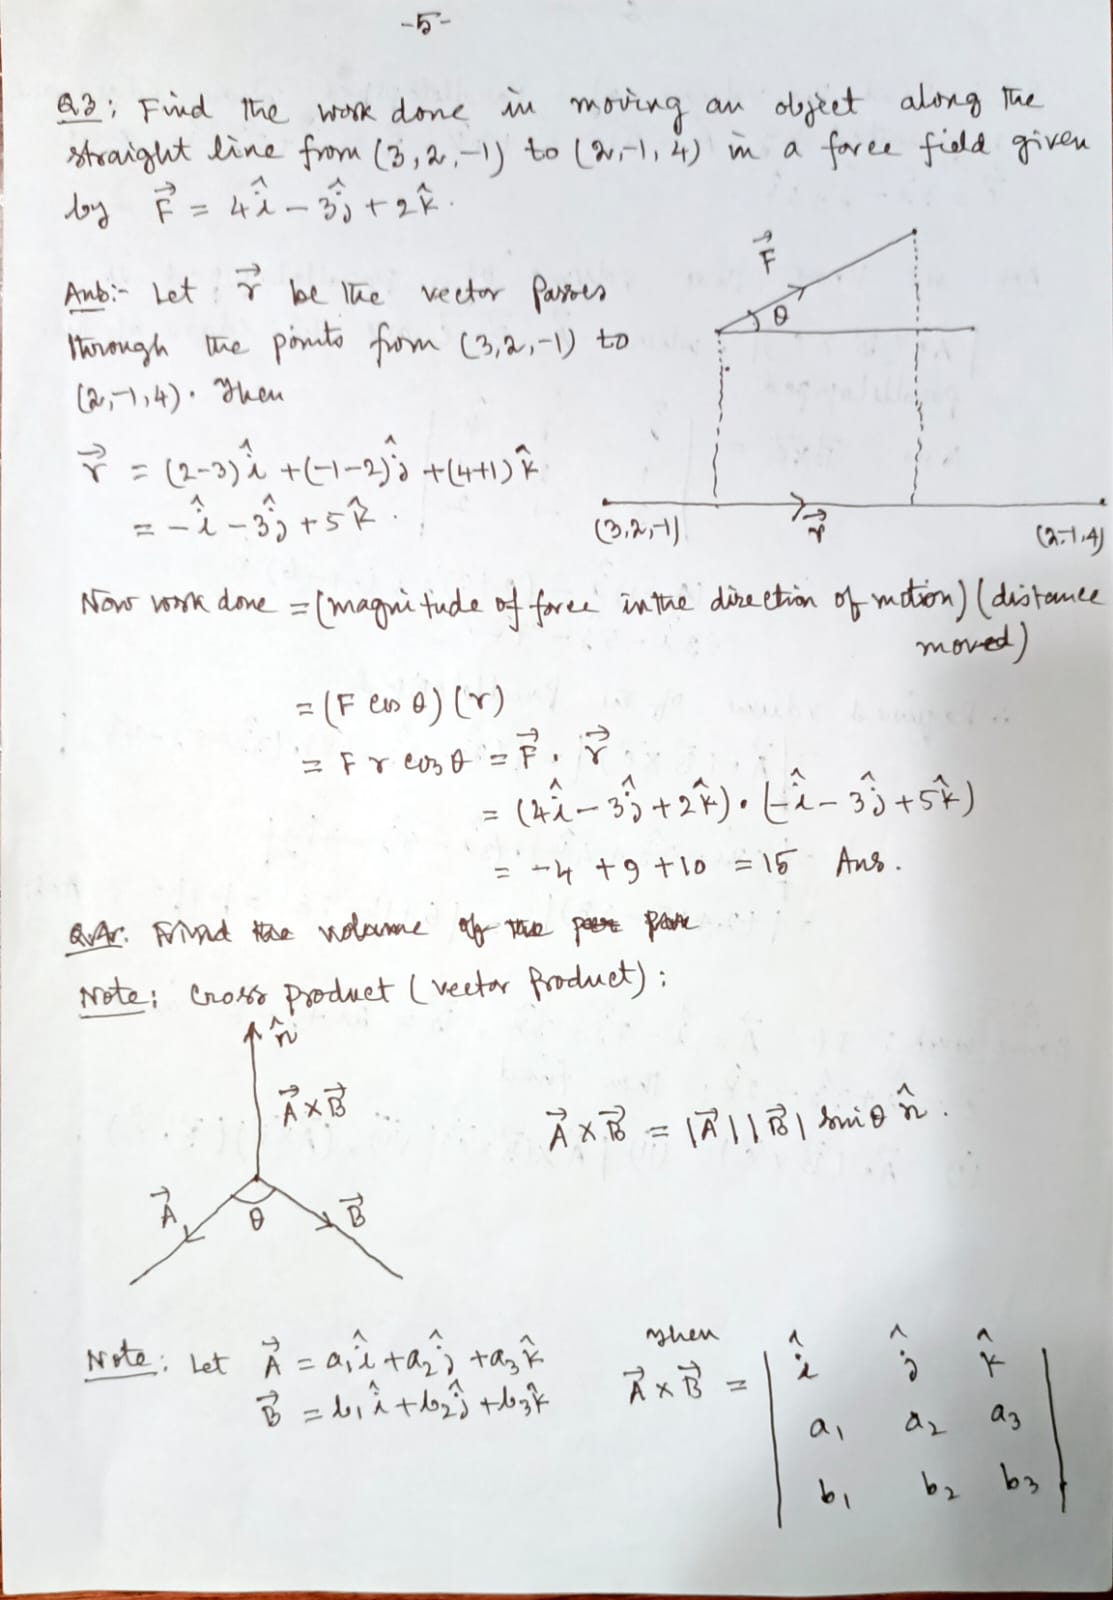 -5-
Q3: Find the work done in moving an object along the
straight line from (3,2,-1) to (2,-1,4) in a force field given
by F⃗ = 4î - 3ĵ + 2k̂.
Ans:- Let r⃗ be the vector passes
through the points from (3,2,-1) to
(2,-1,4). Then
r⃗ = (2-3)î + (-1-2)ĵ + (4+1)k̂
= -î - 3ĵ + 5k̂.
F⃗
θ
(3,2,-1)
r⃗
(2,-1,4)
Now work done = (magnitude of force in the direction of motion) (distance
moved)
= (F cos θ) (r)
= F r cos θ = F⃗ . r⃗
= (4î - 3ĵ + 2k̂) . (-î - 3ĵ + 5k̂)
= -4 + 9 + 10 = 15 Ans.
Q4. Find the volume of the
Note: Cross product (vector product):
n̂
A⃗ × B⃗
A⃗ × B⃗ = |A⃗| |B⃗| sin θ n̂.
A⃗ θ B⃗
Note: Let A⃗ = a₁î + a₂ĵ + a₃k̂ Then
B⃗ = b₁î + b₂ĵ + b₃k̂ A⃗ × B⃗ = | î ĵ k̂
a₁ a₂ a₃
b₁ b₂ b₃ |